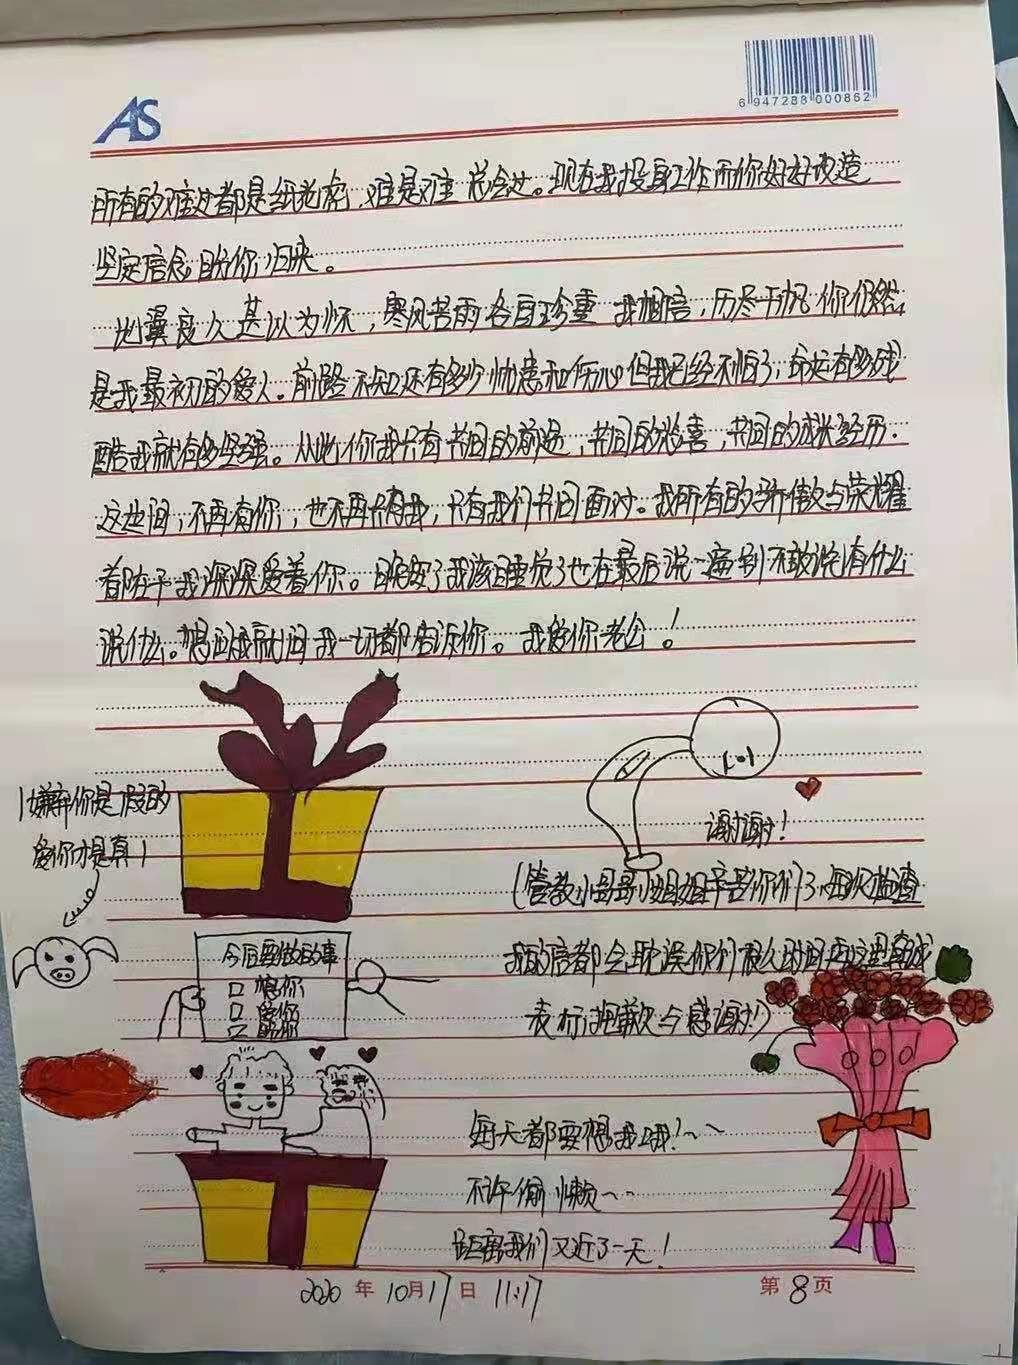 AS
6 947288 000862
所有的难过都是纸老虎,难是难 总会过。现在我投身工作而你好好改造
坚定信念 盼你归来。
地翼良久 甚以为怀,寒风苦雨 各自珍重 我相信,历尽千帆 你仍然
是我最初的爱人。前路不知还有多少忧愁和伤心 但我已经不怕了,命运有多残
酷我就有多坚强。从此你我只有共同的前途,共同的悲喜,共同的成长经历.
这世间,不再有你,也不再只有我,只有我们共同面对。我所有的骄傲与荣耀
都在于我深深爱着你。晚安了我该睡觉了也在最后说一遍 别不敢说有什么
说什么。想问我就问 我一切都告诉你。我爱你老公!
嫌弃你是假的
爱你才是真!
谢谢!
(管教小哥哥小姐姐辛苦你们了、每次检查
我的信都会耽误你们很久时间 在这里真诚
表示抱歉与感谢!)
今日要做的事
□ 想你
□ 爱你
□
每天都要想我哦!~~
不许偷懒~~
距离我们又近了一天!
2020 年 10月17日 11:17
第 8 页